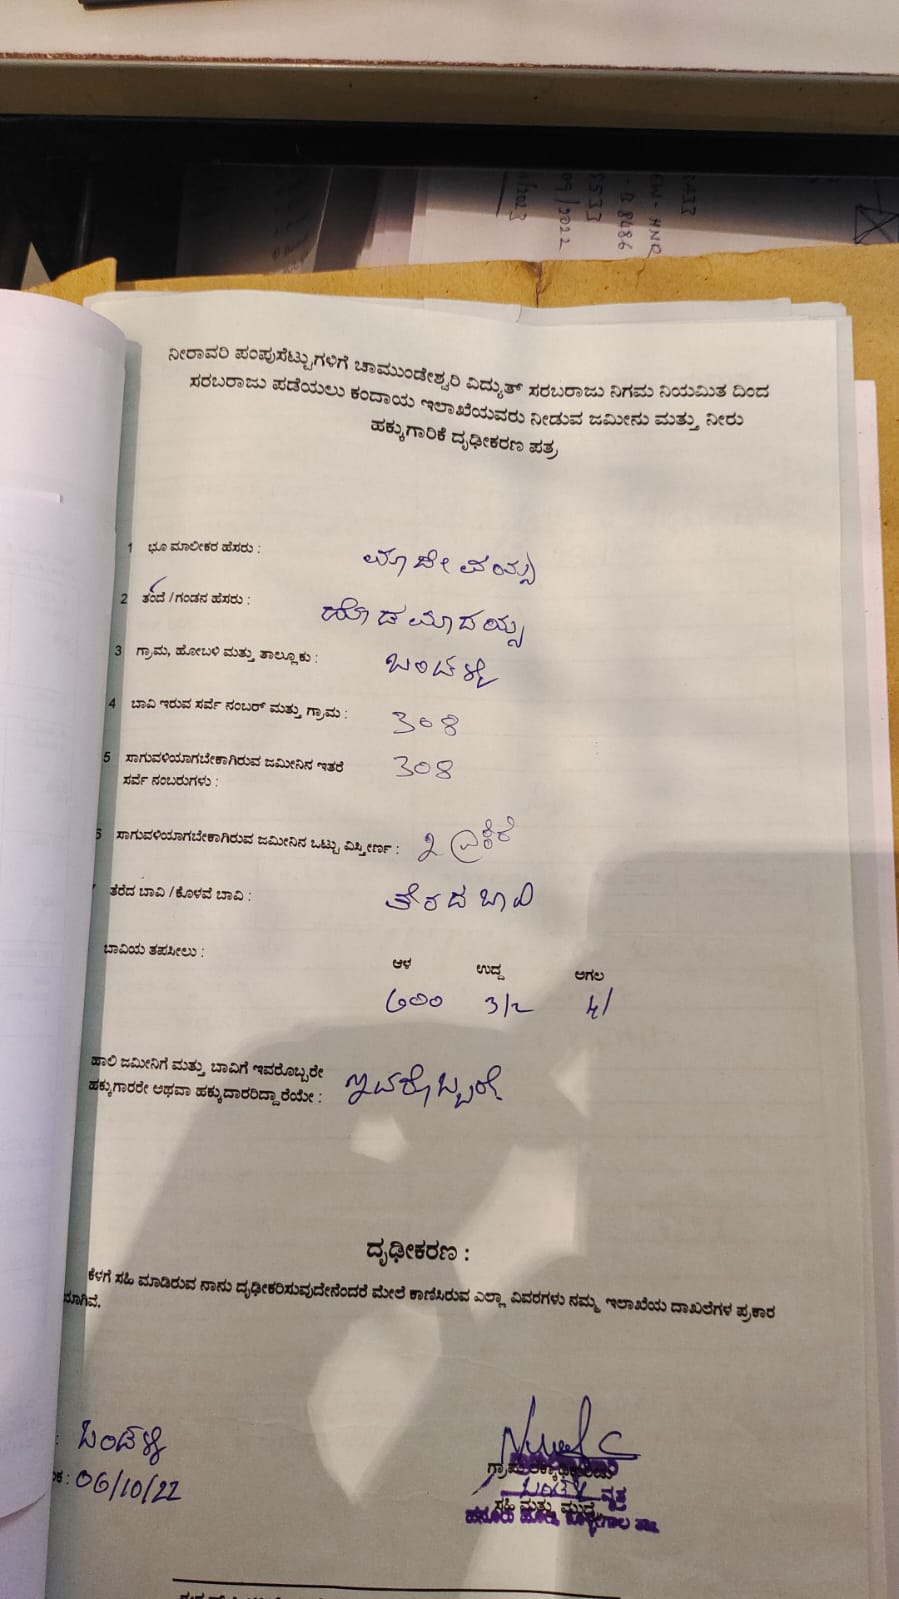 ನೀರಾವರಿ ಪಂಪುಸೆಟ್ಟುಗಳಿಗೆ ಚಾಮುಂಡೇಶ್ವರಿ ವಿದ್ಯುತ್ ಸರಬರಾಜು ನಿಗಮ ನಿಯಮಿತ ದಿಂದ
ಸರಬರಾಜು ಪಡೆಯಲು ಕಂದಾಯ ಇಲಾಖೆಯವರು ನೀಡುವ ಜಮೀನು ಮತ್ತು ನೀರು
ಹಕ್ಕುಗಾರಿಕೆ ದೃಢೀಕರಣ ಪತ್ರ
1 ಭೂ ಮಾಲೀಕರ ಹೆಸರು : ಮಾದೇವಯ್ಯ
2 ತಂದೆ / ಗಂಡನ ಹೆಸರು : ಹೊಡಮಾದಯ್ಯ
3 ಗ್ರಾಮ, ಹೋಬಳಿ ಮತ್ತು ತಾಲ್ಲೂಕು : ಬಂಡಳ್ಳಿ
4 ಬಾವಿ ಇರುವ ಸರ್ವೆ ನಂಬರ್ ಮತ್ತು ಗ್ರಾಮ : 308
5 ಸಾಗುವಳಿಯಾಗಬೇಕಾಗಿರುವ ಜಮೀನಿನ ಇತರೆ 308
ಸರ್ವೆ ನಂಬರುಗಳು :
6 ಸಾಗುವಳಿಯಾಗಬೇಕಾಗಿರುವ ಜಮೀನಿನ ಒಟ್ಟು ವಿಸ್ತೀರ್ಣ : 2 ಎಕರೆ
ತೆರೆದ ಬಾವಿ / ಕೊಳವೆ ಬಾವಿ : ತೆರದ ಬಾವಿ
ಬಾವಿಯ ತಪಸೀಲು :
ಆಳ ಉದ್ದ ಅಗಲ
600 3/2 4/
ಹಾಲಿ ಜಮೀನಿಗೆ ಮತ್ತು ಬಾವಿಗೆ ಇವರೊಬ್ಬರೇ
ಹಕ್ಕುಗಾರರೇ ಅಥವಾ ಹಕ್ಕುದಾರರಿದ್ದಾರೆಯೇ : ಇವರೊಬ್ಬರೇ
ದೃಢೀಕರಣ :
ಕೆಳಗೆ ಸಹಿ ಮಾಡಿರುವ ನಾನು ದೃಢೀಕರಿಸುವುದೇನೆಂದರೆ ಮೇಲೆ ಕಾಣಿಸಿರುವ ಎಲ್ಲಾ ವಿವರಗಳು ನಮ್ಮ ಇಲಾಖೆಯ ದಾಖಲೆಗಳ ಪ್ರಕಾರ
ಯಾಗಿವೆ.
: ಬಂಡಳ್ಳಿ
ಕ : 06/10/22
ಬಂಡಳ್ಳಿ ವೃತ್ತ
ಸಹಿ ಮತ್ತು ಮುದ್ರೆ
ಹನೂರು ಹೋ, ಕೊಳ್ಳೇಗಾಲ ತಾ.